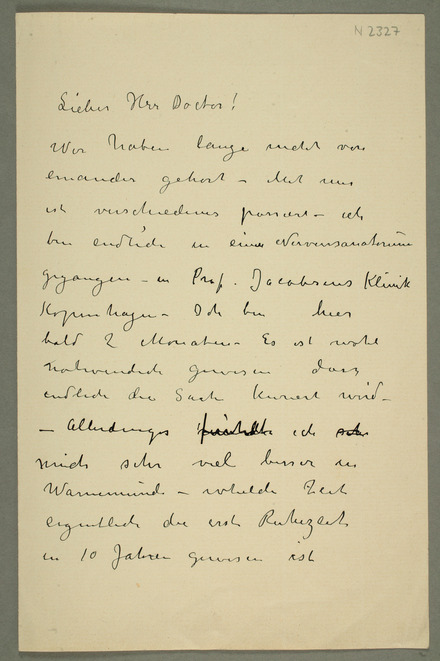 N 2327
Lieber Herr Doctor!
Wir haben lange nicht von
einander gehört – Mit mir
ist verschiedenes passirt – ich
bin endlich in einer Nervensanatorium
gegangen – in Prof. Jacobsens Klinik
Kopenhagen – Ich bin hier
bald 2 Monaten – Es ist wohl
nothwendich gewesen dass
endlich die Sache kuriert wird –
– Allerdings ich
mich sehr viel besser in
Warnemünde – welche Zeit
eigentlich die erste Ruhezeit
in 10 Jahren gewesen ist